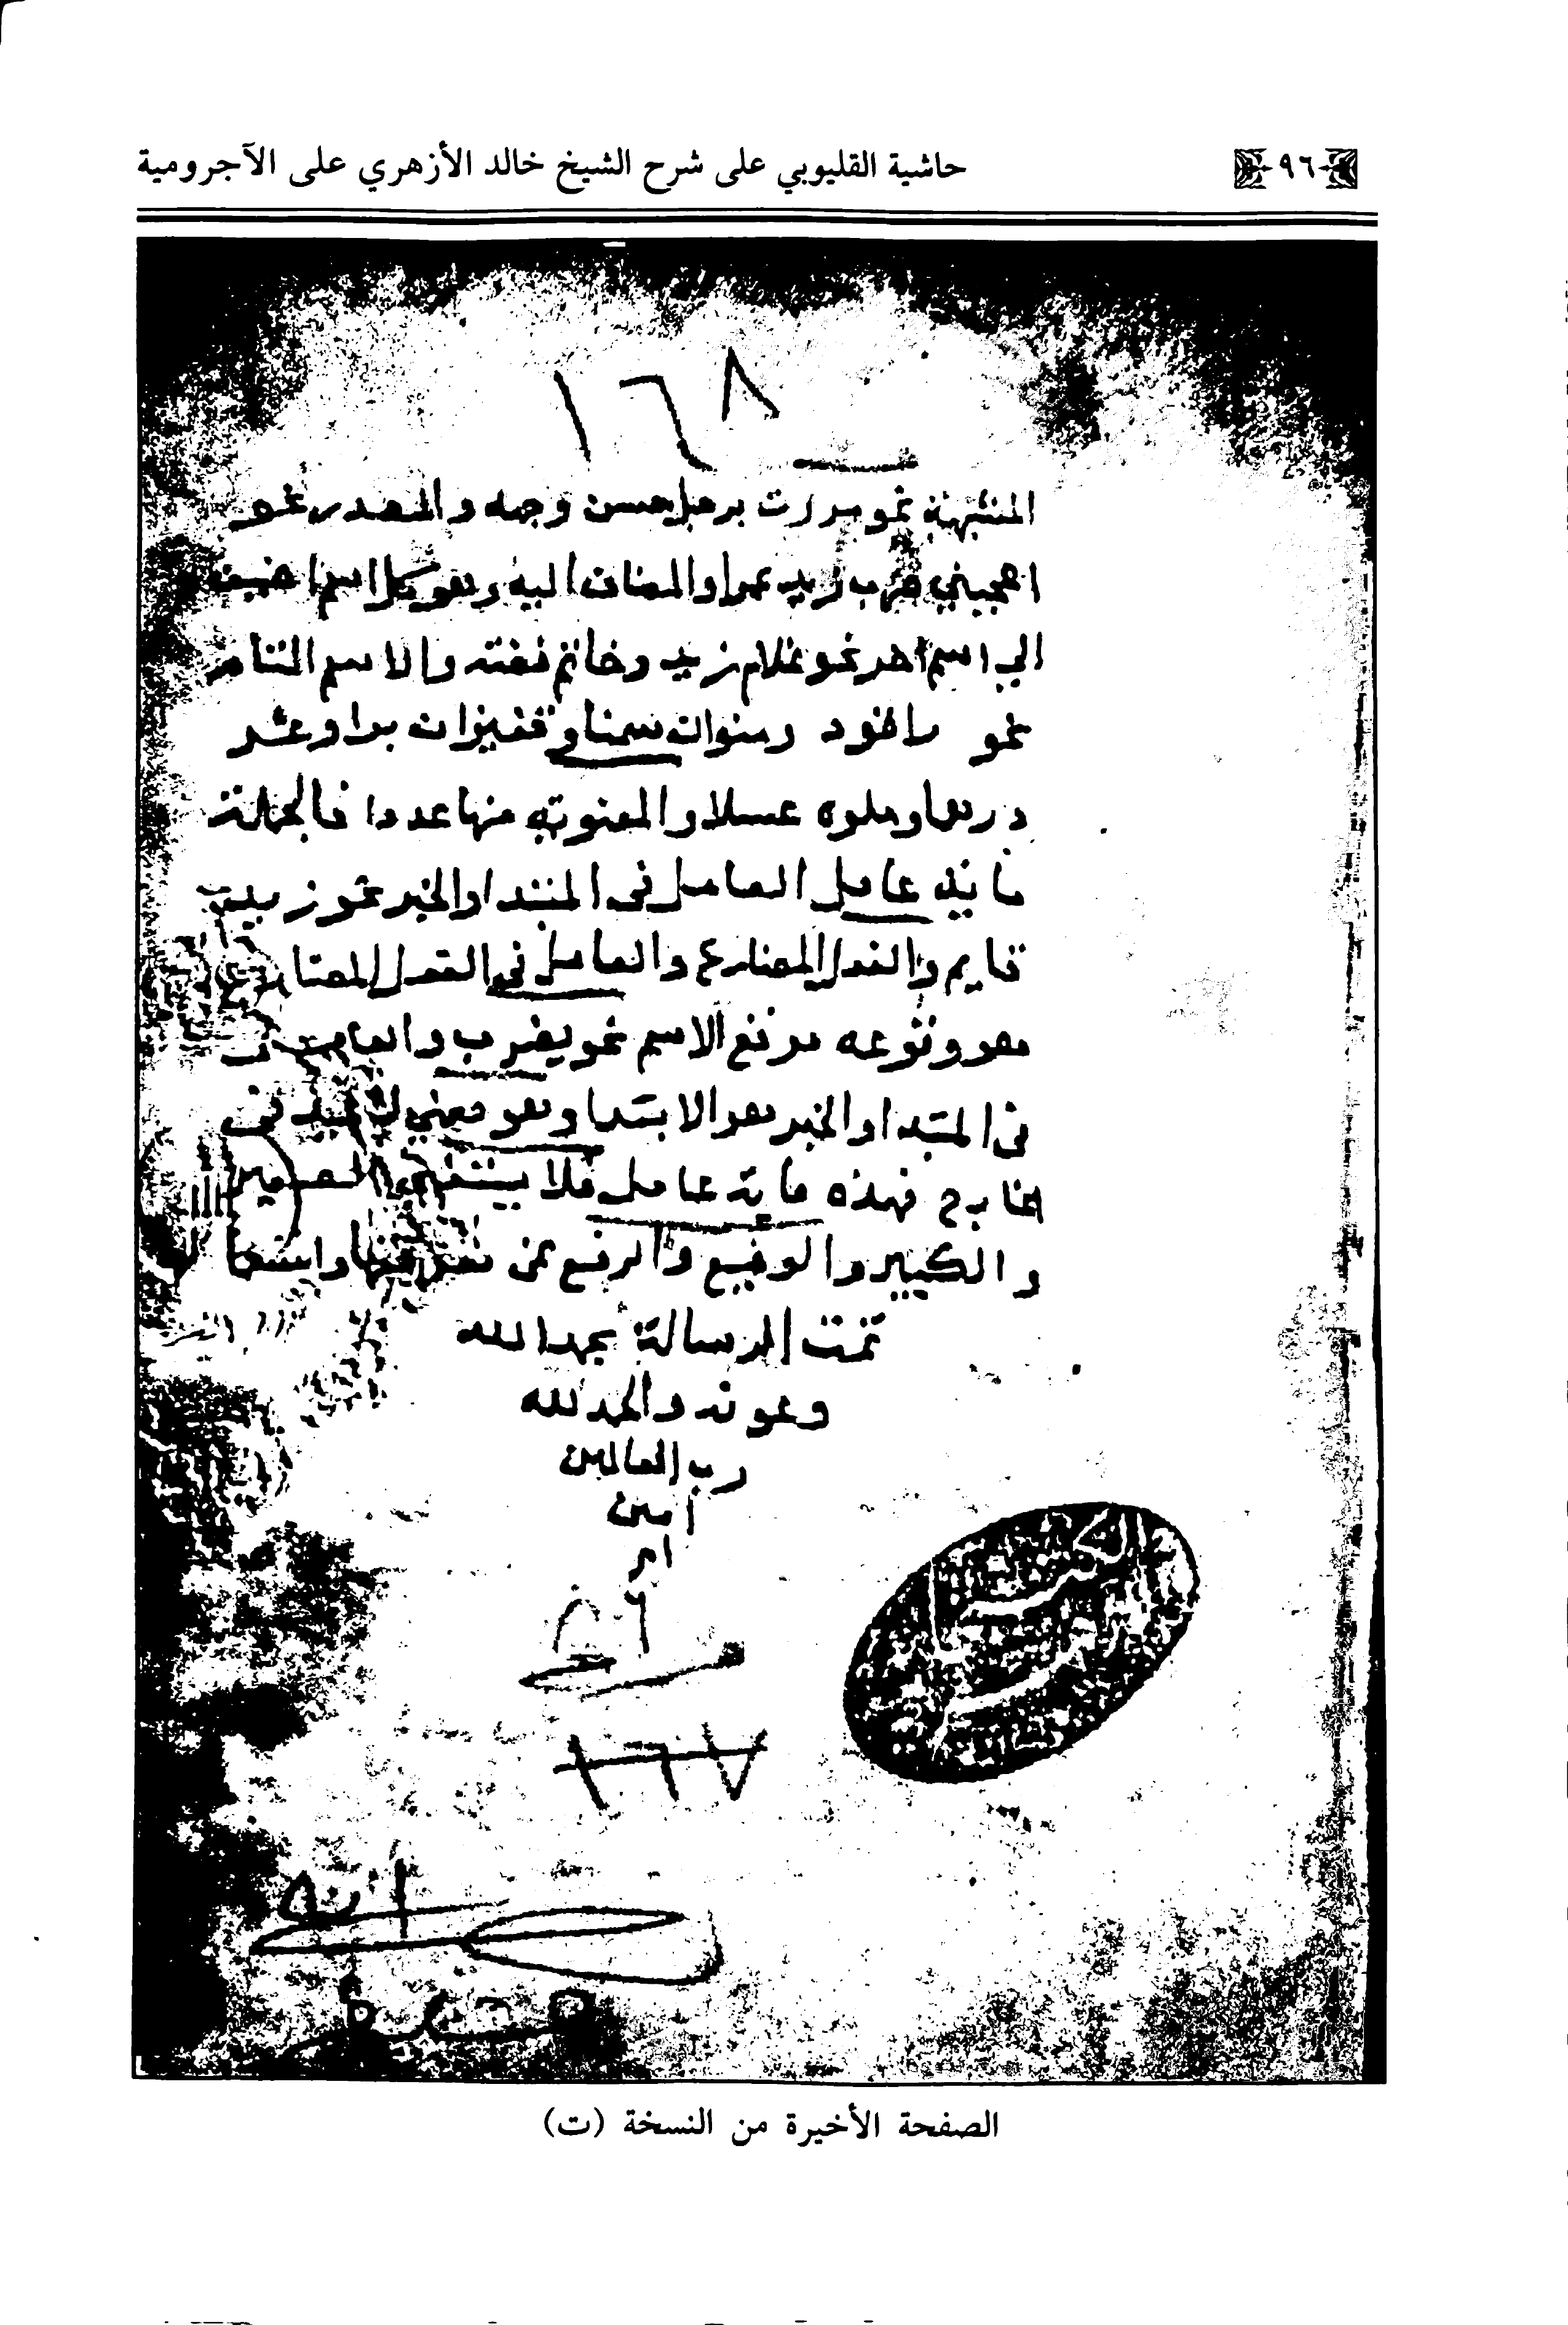 حاشية القليوبي على شرح الشيخ خالد الأزهري على الآجرومية
٩٦
١٦٨
المشبهة نحو مررت برجل حسن وجهه والمصدر نحو
اعجبني ضرب زيد عمرا والمضاف اليه وهو كل اسم اضيف
الي اسم اخر نحو غلام زيد وخاتم فضة والاسم التام
نحو راقود ومنوان سمنا وقفيزان برا وعشر
درهما وملوه عسلا والمعنوية منها عددا فالجملة
ماية عامل العامل في المبتدا والخبر نحو زيد
قايم والفعل المضارع والعامل في الفعل المضارع
هو وقوعه موقع الاسم نحو يضرب والعامل
في المبتدا والخبر هو الابتدا وهو معني
فهذه ماية عامل فلا يستغني الصغير
والكبير والوضيع والرفيع عن
تمت الرسالة بحمد الله
وعونه والحمد لله
رب العالمين
امين
١٦٧
الصفحة الأخيرة من النسخة (ت)